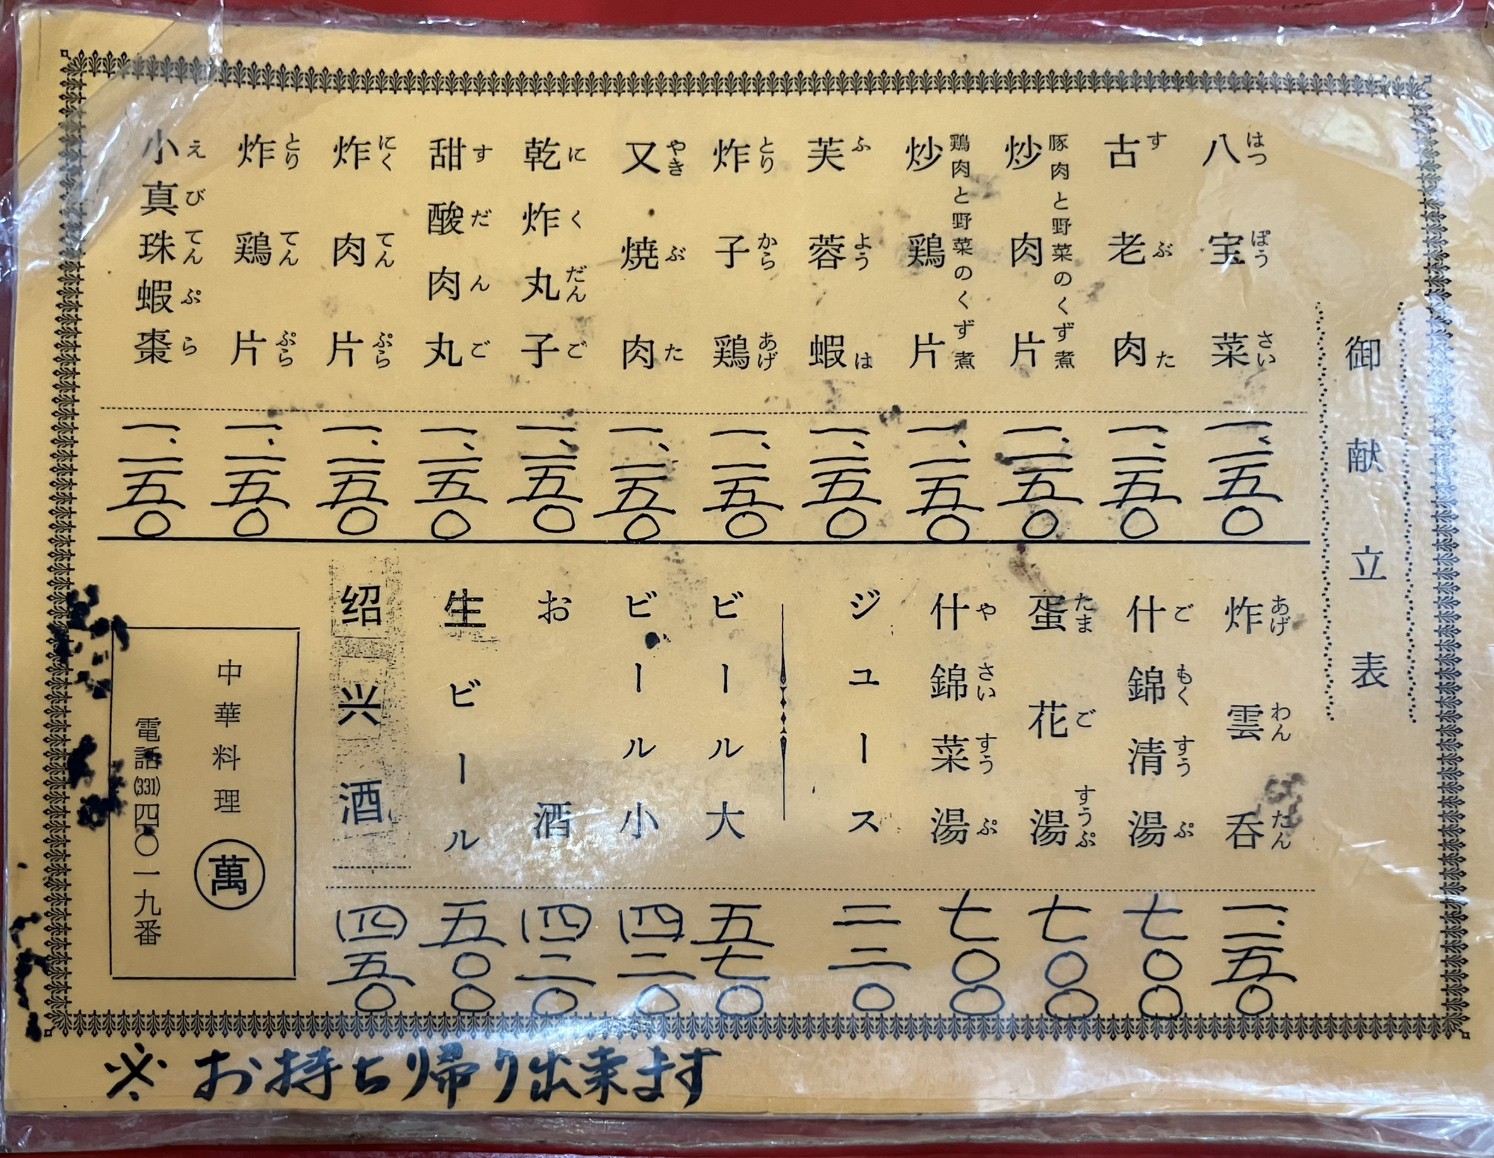 御献立表
八宝菜 はつぽうさい 一、二五〇
古老肉 すぶた 一、二五〇
炒肉片 豚肉と野菜のくず煮 一、二五〇
炒鶏片 鶏肉と野菜のくず煮 一、二五〇
芙蓉蝦 ふようは 一、二五〇
炸子鶏 とりからあげ 一、二五〇
叉焼肉 やきぶた 一、二五〇
乾炸丸子 にくだんご 一、二五〇
甜酸肉丸 すだんご 一、二五〇
炸肉片 にくてんぷら 一、二五〇
炸鶏片 とりてんぷら 一、二五〇
小真珠蝦棗 えびてんぷら 一、二五〇
炸雲呑 あげわんたん 一、二五〇
什錦清湯 ごもくすうぷ 七〇〇
蛋花湯 たまごすうぷ 七〇〇
什錦菜湯 やさいすうぷ 七〇〇
ジュース 三二〇
ビール大 五七〇
ビール小 四二〇
お酒 四二〇
生ビール 五〇〇
绍兴酒 四五〇
中華料理 萬
電話(331)四〇一九番
※お持ち帰り出来ます